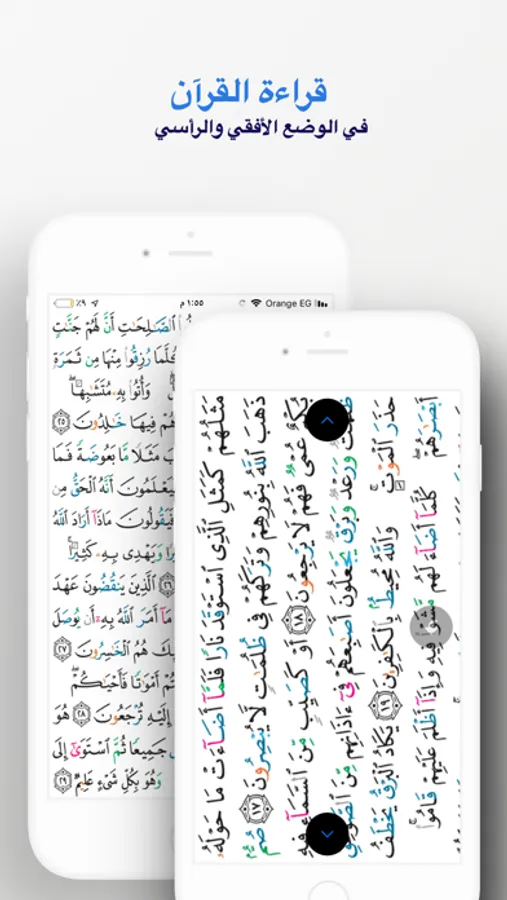 قراءة القرآن
في الوضع الأفقي والرأسي
٪٩ ١:٥٥ م Orange EG
ٱلصَّـٰلِحَـٰتِ أَنَّ لَهُمْ جَنَّـٰتٍ
كُلَّمَا رُزِقُوا۟ مِنْهَا مِن ثَمَرَةٍ
وَأُتُوا۟ بِهِۦ مُتَشَـٰبِهًا ۖ
هُمْ فِيهَا خَـٰلِدُونَ ٢٥
مَثَلًا مَّا بَعُوضَةً فَمَا
فَيَعْلَمُونَ أَنَّهُ ٱلْحَقُّ مِن
فَيَقُولُونَ مَاذَآ أَرَادَ ٱللَّهُ
وَيَهْدِى بِهِۦ كَثِيرًا ۚ
٢٦ ٱلَّذِينَ يَنقُضُونَ عَهْدَ
مَآ أَمَرَ ٱللَّهُ بِهِۦٓ أَن يُوصَلَ
هُمُ ٱلْخَـٰسِرُونَ ٢٧
أَمْوَٰتًا فَأَحْيَـٰكُمْ ۖ
إِلَيْهِ تُرْجَعُونَ ٢٨ هُوَ
جَمِيعًا ثُمَّ ٱسْتَوَىٰٓ إِلَى
وَهُوَ بِكُلِّ شَىْءٍ عَلِيمٌ ٢٩
مَثَلُهُمْ كَمَثَلِ ٱلَّذِى ٱسْتَوْقَدَ نَارًا فَلَمَّآ أَضَآءَتْ مَا حَوْلَهُۥ
ذَهَبَ ٱللَّهُ بِنُورِهِمْ وَتَرَكَهُمْ فِى ظُلُمَـٰتٍ لَّا يُبْصِرُونَ ١٧ صُمٌّۢ
بُكْمٌ عُمْىٌ فَهُمْ لَا يَرْجِعُونَ ١٨ أَوْ كَصَيِّبٍ مِّنَ ٱلسَّمَآءِ فِيهِ
ظُلُمَـٰتٌ وَرَعْدٌ وَبَرْقٌ يَجْعَلُونَ أَصَـٰبِعَهُمْ فِىٓ ءَاذَانِهِم مِّنَ ٱلصَّوَٰعِقِ
حَذَرَ ٱلْمَوْتِ ۚ وَٱللَّهُ مُحِيطٌۢ بِٱلْكَـٰفِرِينَ ١٩ يَكَادُ ٱلْبَرْقُ يَخْطَفُ
أَبْصَـٰرَهُمْ ۖ كُلَّمَآ أَضَآءَ لَهُم مَّشَوْا۟ فِيهِ وَإِذَآ أَظْلَمَ عَلَيْهِمْ قَامُوا۟ ۚ